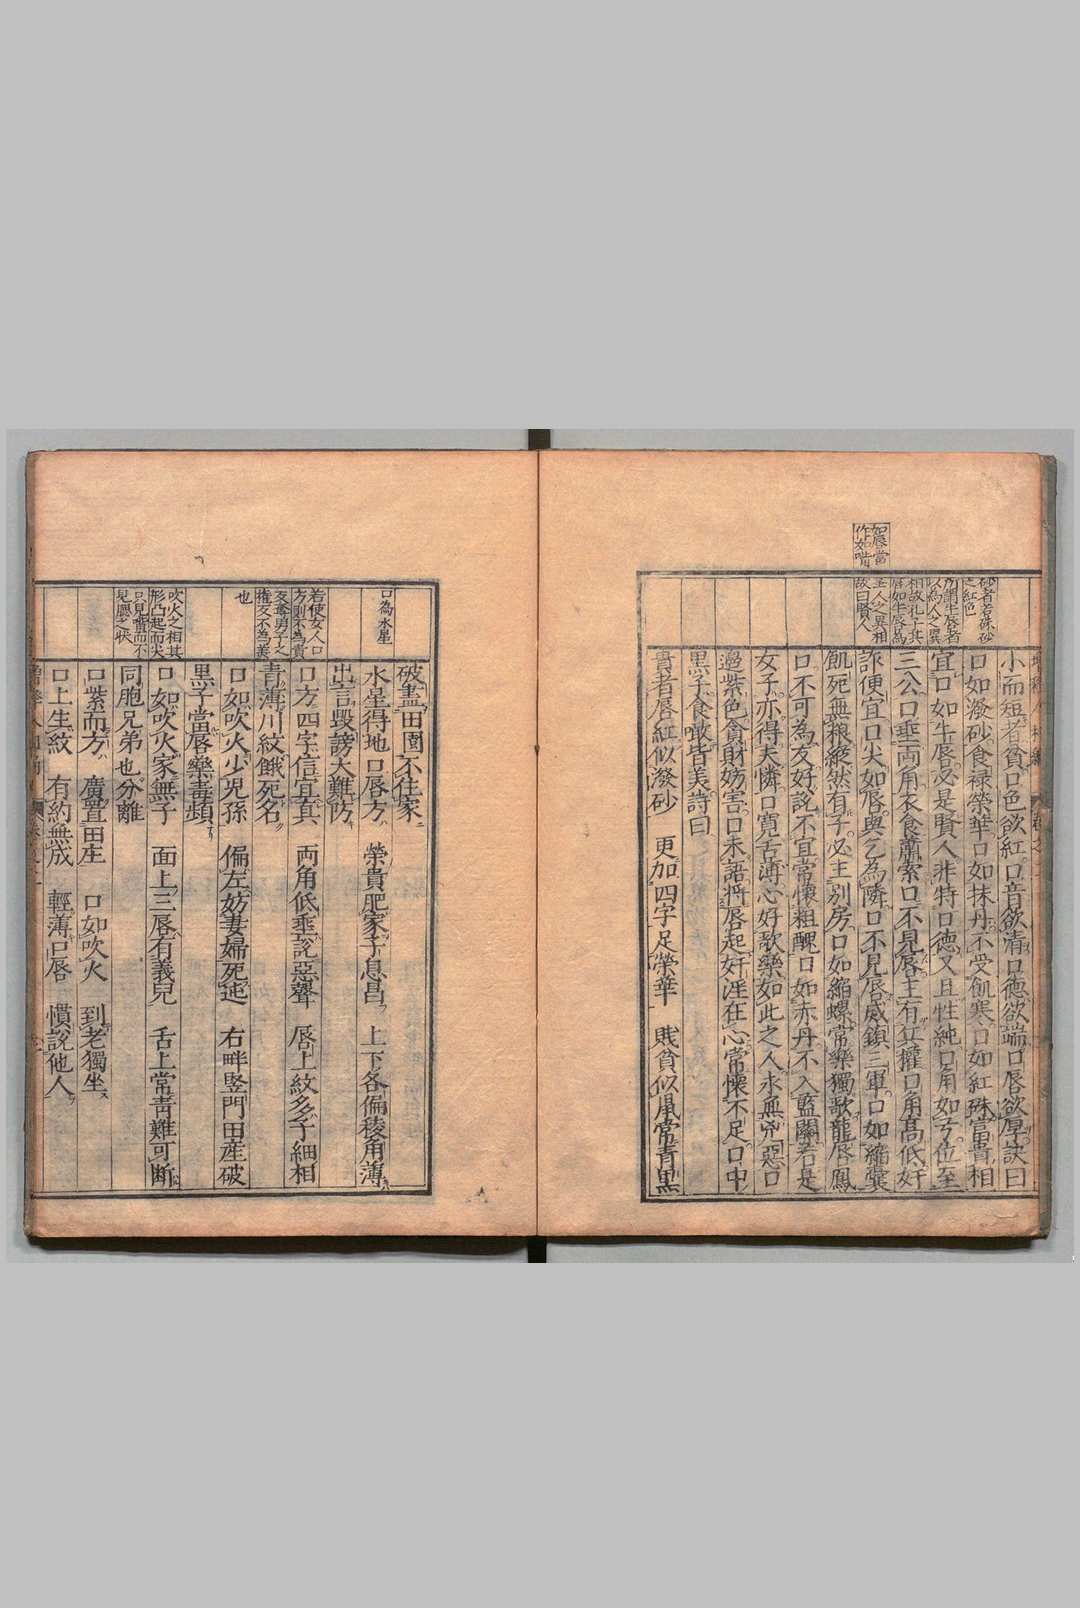 如唇當
作如㗖
砂者若硃砂
之紅色
所謂牛唇者
以為人之異
相故孔子其
唇如牛唇為
聖人之異相
故曰賢人
小而短者貧口色欲紅口音欲清口德欲端口唇欲厚訣曰
口如潑砂食禄榮華口如抹丹不受飢寒口如紅硃當貴相
宜口如牛唇必是賢人非特口德又且性純口角如弓位至
三公口垂両角衣食蕭索口不見唇主有兵權口角高低奸
詐便宜口尖如唇與乞為隣口不見唇威鎮三軍口如縮囊
飢死無粮縱然有子必主別房口如縮螺常樂獨歌龍唇鳳
口不可為友好說不宜常懷粗醜口如赤丹不入藍關若是
女子亦得夫憐口寛舌薄心好歌樂如此之人永無兇惡口
邊紫色貪財妨害口未語將唇起奸淫在心常懷不足口中
黒子食噉皆美詩曰
貴者唇紅似潑砂　更加四字足榮華　賎貧似鼠常青黒
破盡田園不住家
口為水星
水星得地口唇方　榮貴肥家子息昌　上下各偏稜角薄
出言毀謗大難防
若使女人口
方則不為貴
反奪男子之
權反不為美
也
口方四字信宜真　両角低垂說惡聲　唇上紋多子細相
青薄川紋餓死名
口如吹火少児孫　偏左妨妻婦死迍　右畔竪門田産破
黒子當唇藥毒頻
吹火之相其
形凸起而尖
只見觜而不
見唇之狀
口如吹火家無子　面上三唇有義兒　舌上常青難可断
同胞兄弟也分離
口紫而方　廣置田庄　口如吹火　到老獨坐
口上生紋　有約無成　輕薄口唇　慣說他人